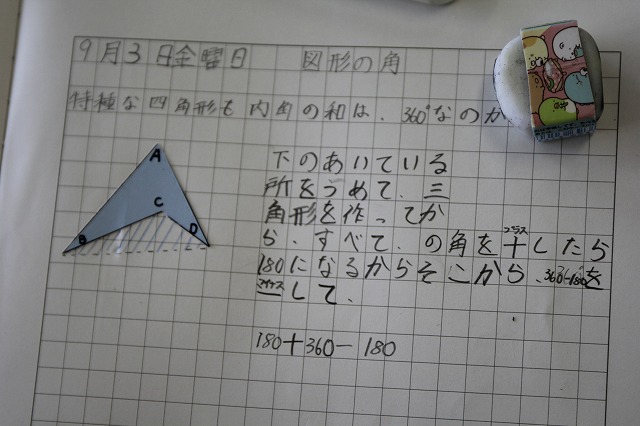 9月3日金曜日 図形の角
特種な四角形も内角の和は、360°なのか
A
C
B
D
下のあいている
所をうめて、三
角形を作ってか
ら、すべて、の角を十したら
プラス
180になるからそこから、360-180を
マイナス
ーして、
180+360-180